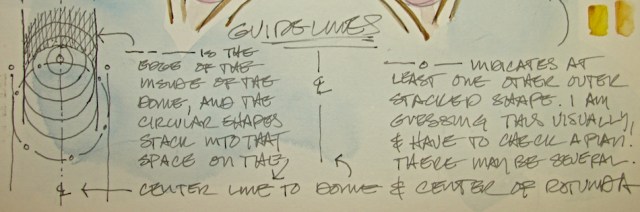 GUIDELINES
— — — — — IS THE
EDGE OF THE
INSIDE OF THE
DOME, AND THE
CIRCULAR SHAPES
STACK INTO THAT
SPACE ON THE
℄
— o — INDICATES AT
LEAST ONE OTHER OUTER
STACKED SHAPE. I AM
GUESSING THIS VISUALLY,
& HAVE TO CHECK A PLAN.
THERE MAY BE SEVERAL.
℄ ← CENTER LINE TO DOME & CENTER OF ROTUNDA